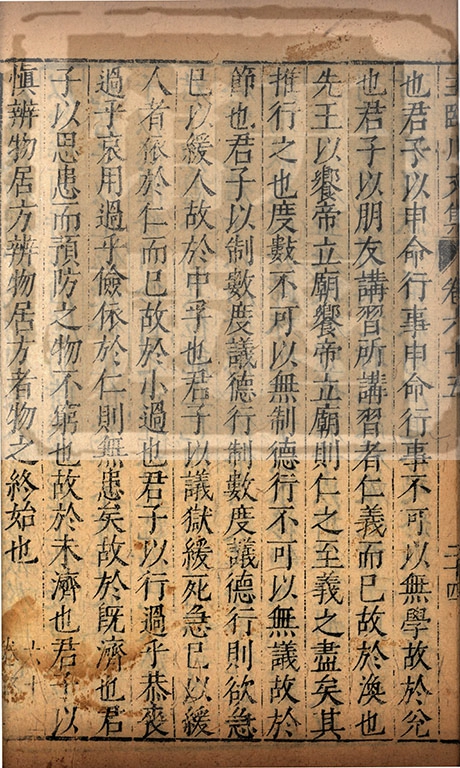 王臨川文集 卷六十五 二十四
也君子以申命行事申命行事不可以無學故於兌
也君子以朋友講習所講習者仁義而已故於渙也
先王以饗帝立廟饗帝立廟則仁之至義之盡矣其
推行之也度數不可以無制德行不可以無議故於
節也君子以制數度議德行制數度議德行則欲急
巳以緩人故於中孚也君子以議獄緩死急巳以緩
人者依於仁而巳故於小過也君子以行過乎恭喪
過乎哀用過乎儉依於仁則無患矣故於既濟也君
子以思患而預防之物不窮也故於未濟也君子以
愼辨物居方辨物居方者物之終始也